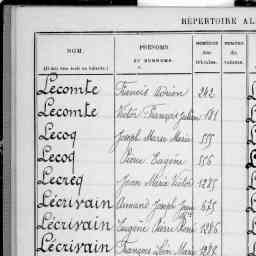 RÉPERTOIRE AL
NOM.
(Il doit être écrit en bâtarde.)
PRÉNOMS
ET SURNOMS.
NUMÉROS
des
VOLUMES.
Lecomte Francis Adrien 242
Lecomte Victor François Julien 181
Lecoq Joseph Marie 555
Lecoq Pierre Eugène 556
Lecreq Jean Marie Victor 1285
Lécrivain Armand Joseph 675
Lécrivain Eugène Pierre 1286
Lécrivain François Léon Marie 1287